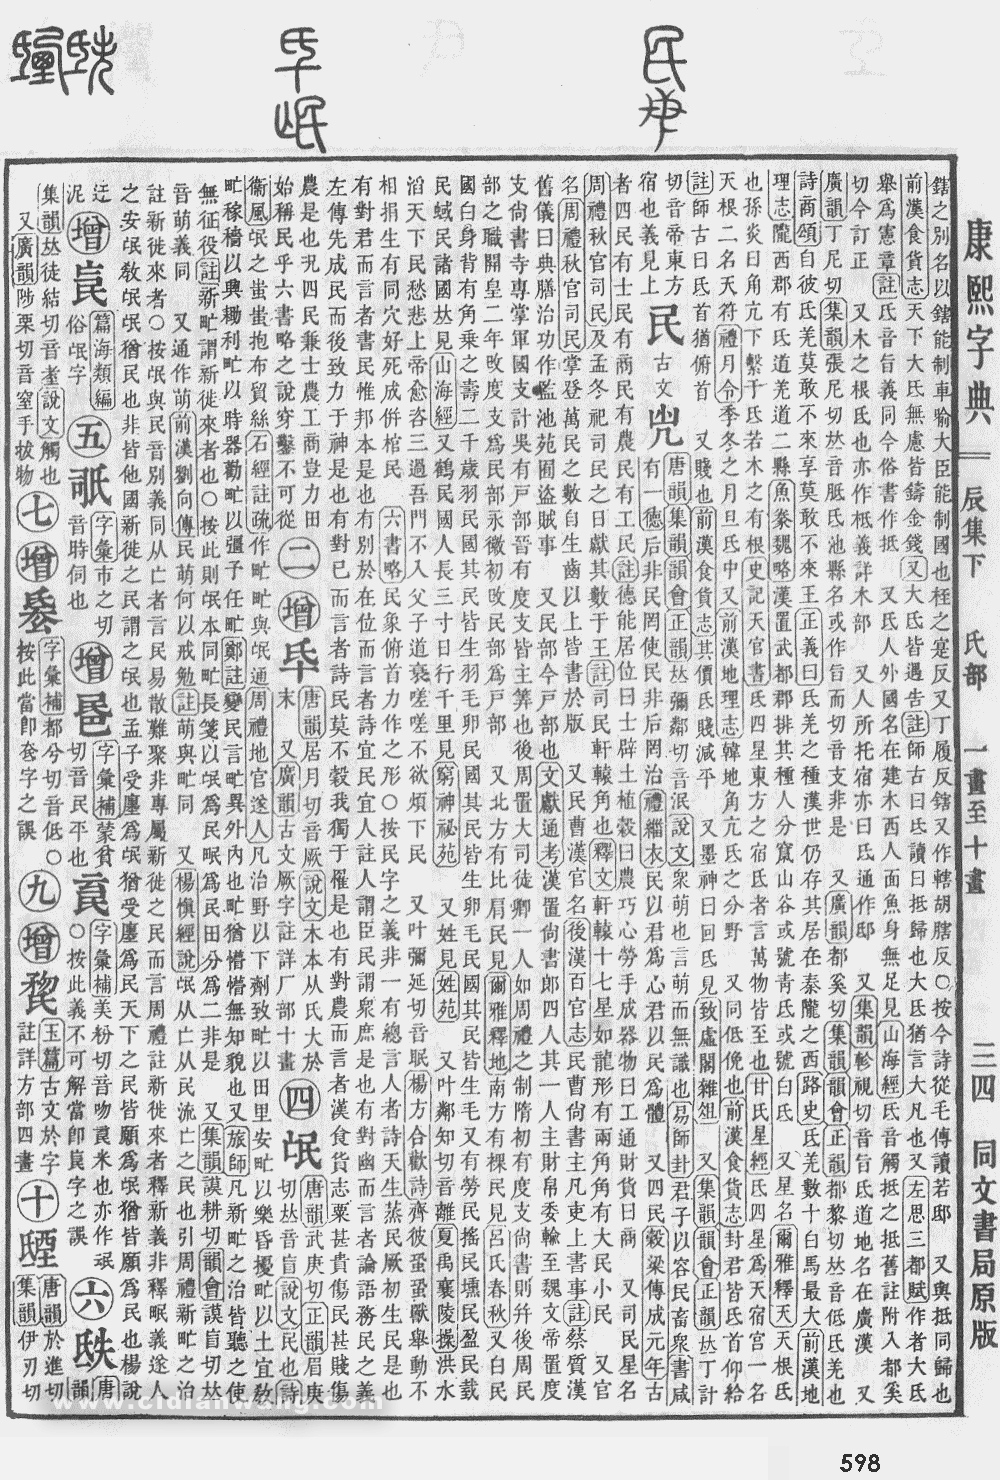 康熙字典 辰集下 氏部 一畫至十畫 三四 同文書局原版
鎋之別名以鎋能制車喻大臣能制國也桎之寔反又丁履反鎋又作轄胡瞎反○按今詩從毛傳讀若邸 又與抵同歸也
前漢食貨志天下大氐無慮皆鑄金錢又大氐皆遇告註師古曰氐讀曰抵歸也大氐猶言大凡也又左思三都賦作者大氐
舉爲憲章註氐音旨義同今俗書作抵 又氐人外國名在建木西人面魚身無足見山海經氐音觸抵之抵舊註附入都奚
切今訂正 又木之根氐也亦作柢義詳木部 又人所托宿亦曰氐通作邸 又集韻軫視切音旨氐道地名在廣漢 又
廣韻丁尼切集韻張尼切𠀤音胝氐池縣名或作旨而切音支非是 又廣韻都奚切集韻韻會正韻都黎切𠀤音低氐羌也
詩商頌自彼氐羌莫敢不來享莫敢不來王正義曰氐羌之種漢世仍存其居在秦隴之西路史氐羌數十白馬最大前漢地
理志隴西郡有氐道羌道二縣魚豢魏略漢置武都郡排其種人分竄山谷或號靑氐或號白氐 又星名爾雅釋天天根氐
也孫炎曰角亢下繫于氐若木之有根史記天官書氐四星東方之宿氐者言萬物皆至也甘氏星經氐四星爲天宿宮一名
天根二名天符禮月令季冬之月旦氐中又前漢地理志韓地角亢氐之分野 又同低俛也前漢食貨志封君皆氐首仰給
註師古曰氐首猶俯首 又賤也前漢食貨志其價氐賤減平 又墨神曰回氐見致虛閣雜俎 又集韻韻會正韻𠀤丁計
切音帝東方宿也義見上 民 古文 𠘽 唐韻集韻韻會正韻𠀤彌鄰切音泯說文衆萌也言萌而無識也易師封君子以容民畜衆書咸
有一德后非民罔使民非后罔治禮緇衣民以君爲心君以民爲體 又四民穀梁傳成元年古
者四民有士民有商民有農民有工民註德能居位曰士辟土植穀曰農巧心勞手成器物曰工通財貨曰商 又司民星名
周禮秋官司民及孟冬祀司民之日獻其數于王註司民軒轅角也釋文軒轅十七星如龍形有兩角角有大民小民 又官
名周禮秋官司民掌登萬民之數自生齒以上皆書於版 又民曹漢官名後漢百官志民曹尙書主凡吏上書事註蔡質漢
舊儀曰典膳治功作監池苑囿盜賊事 又民部今戸部也文獻通考漢置尙書郎四人其一人主財帛委輸至魏文帝置度
支尙書寺專掌軍國支計吳有戸部晉有度支皆主筭也後周置大司徒卿一人如周禮之制隋初有度支尙書則幷後周民
部之職開皇二年攺度支爲民部永徽初攺民部爲戸部 又北方有比肩民見爾雅釋地南方有裸民見呂氏春秋又白民
國白身背有角乘之壽二千歲羽民國其民皆生羽毛卵民國其民皆生卵毛民國其民皆生毛又有勞民搖民壎民盈民䟾
民蜮民諸國𠀤見山海經又鶴民國人長三寸日行千里見窮神祕苑 又姓見姓苑 又叶鄰知切音離夏禹襄陵操洪水
滔天下民愁悲上帝愈咨三過吾門不入父子道衰嗟嗟不欲煩下民 又叶彌延切音眠楊方合歡詩齊彼蛩蛩獸舉動不
相捐生有同穴好死成併棺民 六書略民象俯首力作之形○按民字之義非一有總言人者詩天生蒸民厥初生民是也
有對君而言者書民惟邦本是也有別於在位而言者詩宜民宜人註人謂臣民謂衆庶是也有對幽而言者論語務民之義
左傳先成民而後致力于神是也有對已而言者詩民莫不穀我獨于罹是也有對農而言者漢食貨志粟甚貴傷民甚賤傷
農是也況四民兼士農工商豈力田
始稱民乎六書略之說穿鑿不可從 二 增 氒 唐韻居月切音厥說文木本从氏大於
末 又廣韻古文厥字註詳厂部十畫 四 氓 唐韻武庚切正韻眉庚
切𠀤音盲說文民也詩
衞風氓之蚩蚩抱布貿絲石經註疏作甿甿與氓通周禮地官遂人凡治野以下劑致甿以田里安甿以樂昏擾甿以土宜敎
甿稼穡以興耡利甿以時器勸甿以彊予任甿鄭註變民言甿異外內也甿猶懵懵無知貌也又旅師凡新甿之治皆聽之使
無征役註新甿謂新徙來者也○按此則氓本同甿長箋以氓爲民甿爲民田分爲二非是 又集韻謨耕切韻會謨盲切𠀤
音萌義同 又通作萌前漢劉向傳民萌何以戒勉註萌與甿同 又楊愼經說氓从亡从民流亡之民也引周禮新甿之治
註新徙來者○按氓與民音別義同从亡者言民易散難聚非專屬新徙之民而言周禮註新徙來者釋新義非釋甿義遂人
之安氓敎氓猶民也非皆他國新徙之民謂之氓也孟子受廛爲氓猶受廛爲民天下之民皆願爲氓猶皆願爲民也楊說
迂
泥 增 㞩 篇海類編
俗氓字 五 㡳 字彙巿之切
音時伺也 增 㫯 字彙補蒙貧
切音民平也 𠅾 字彙補美粉切音吻㒸米也亦作氓
○按此義不可解當卽㞩字之譌 六 𣱅 唐韻
集韻𠀤徒結切音耊說文觸也
又廣韻陟栗切音窒手拔物 七 增 𢍏 字彙補都兮切音低○
按此當卽㢧字之譌 九 增 𣱐 玉篇古文於字
註詳方部四畫 十 𦥎 唐韻於進切
集韻伊刃切
www.cidianwang.com
598